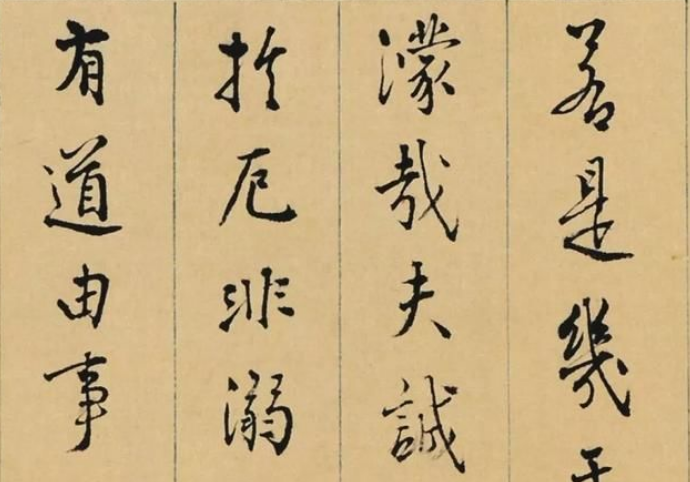 若是幾
濛哉夫誠
扵厄非溺
有道由事